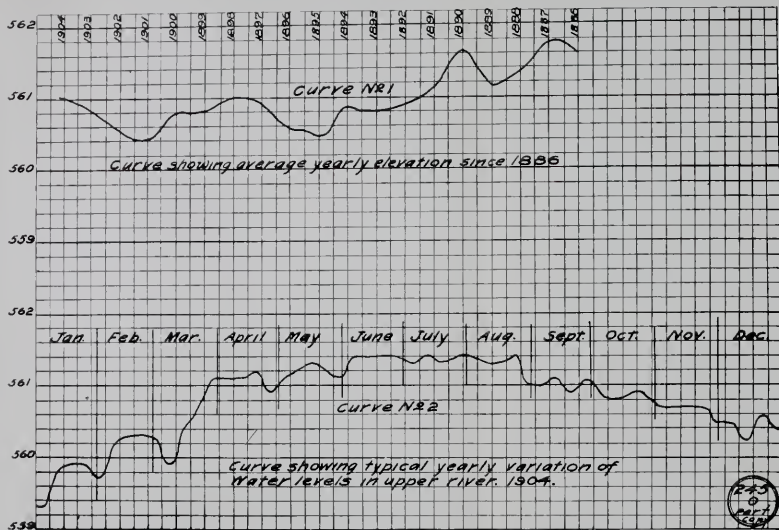 562
1904 1903 1902 1901 1900 1899 1898 1897 1896 1895 1894 1893 1892 1891 1890 1889 1888 1887 1886
561
Curve №1
560
Curve showing average yearly elevation since 1886
559
562
Jan. Feb. Mar. April May June July Aug. Sept. Oct. Nov. Dec.
561
Curve №2
560
Curve showing typical yearly variation of
Water levels in upper river. 1904.
539
245
0
Part